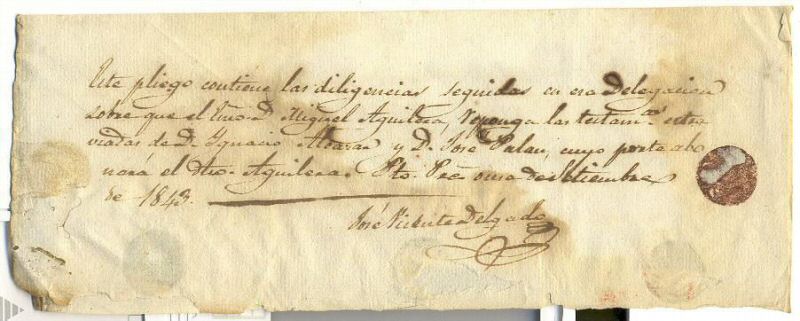 Este pliego contiene las diligencias seguidas en esa Delegacion
sobre que el Esno. D. Miguel Aguilera, reponga las testam.as estra
viadas de D. Ignacio y D. José Palau, cuyo porte abo
nará el Aguilera. Pto. Pre. once de Setiembre
de 1843.
José Vicente Delgado